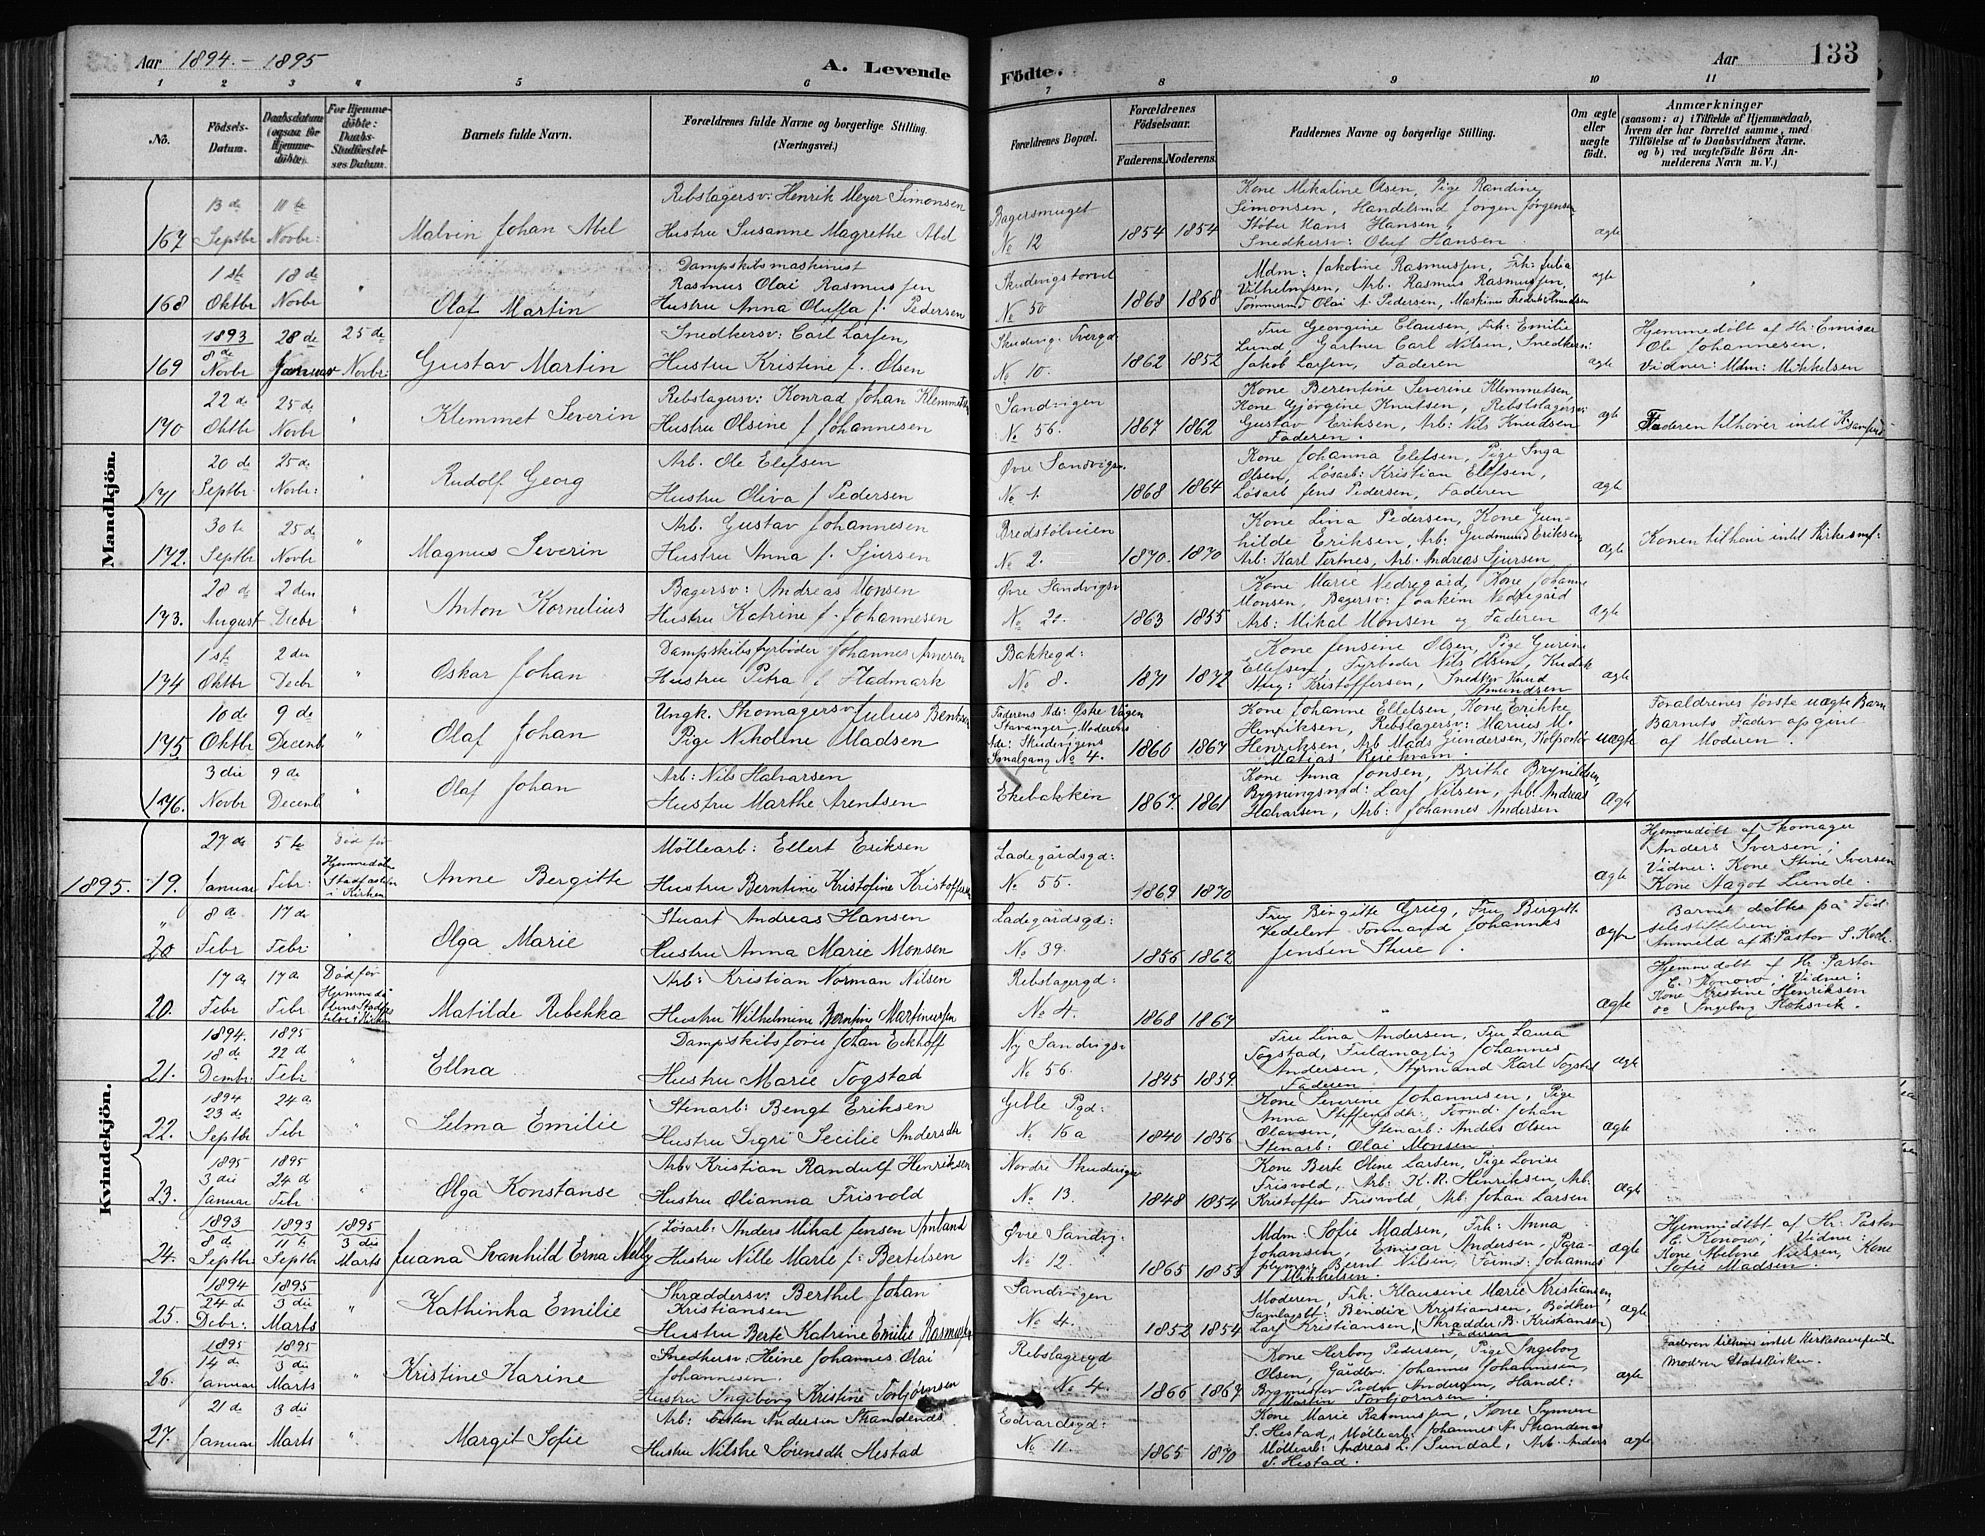 Aar 1894. - 1895
A. Levende Födte.
Aar
133
1 2 3 " 5 6 7 8 9 10 11
No.
Födsels-Datum.
Daabsdatum (ogsaa for Hjemmedöbte).
For Hjemmedöbte: Daabs-Stadfæstelses Datum.
Barnets fulde Navn.
Forældrenes fulde Navne og borgerlige Stilling. (Næringsvei.)
Forældrenes Bopæl.
Forældrenes Födselsaar.
Faderens. Moderens.
Faddernes Navne og borgerlige Stilling.
Om ægte eller uægte födt.
Anmærkninger
(saasom: a) i Tilfælde af Hjemmedaab, hvem der har forrettet samme, med Tilföielse af to Daabsvidners Navne. og b) ved uægtefödte Börn Anmelderens Navn m. V.)
Mandkjön.
167 13 de Septbr 11 te Novbr: "
Malvin Johan Abel
Rebslagersv: Henrik Meyer Simonsen
Hustru Susanne Magrethe Abel
Bagersmuget
No 12
1854 1854
Kone Mikaline Olsen, Pige Randine
Simonsen, Handelsmd Jörgen Jörgensen
Støber Hans Hansen,
Snedkersv: Oluf Hansen.
ægte
168 1 ste Oktbr 18 de Novbr "
Olaf Martin
Dampskibsmaskinist
Rasmus Olai Rasmussen
Hustru Anna Oluffa f. Pedersen
Skudevigstorvet
No 50
1868 1868
Mdm: Jakobine Rasmussen, Frk: Julia
Vilhelmsen, Arb. Rasmus Rasmussen,
Tømmermd Olai A. Pedersen, Maskinis Fredrik Knudsen
ægte
169 1893 8 de Novbr 28 de Januar 25 de Novbr:
Gustav Martin
Snedkersv: Carl Larsen,
Hustru Kristine f. Olsen
Skudevig. Tvergd:
No 10.
1862 1852
Fru Georgine Clausen, Frk: Emilie
Lund, Gartner Carl Nilsen, Snedkersv:
Jakob Larsen, Faderen
ægte
Hjemmedøbt af Hr: Emisær
Ole Johannesen.
Vidner: Mdm: Mikkelsen
170 22 de Oktbr 25 de Novbr "
Klemmet Severin
Rebslagersv: Konrad Johan Klemmetsen
Hustru Olsine f. Johannesen
Sandvigen
No 56.
1867 1862
Kone Berentine Severine Klemmetsen,
Kone Gjørgine Knutsen, Rebslagersv:
Gustav Eriksen, Arb: Nils Knudsen
Faderen.
ægte
Faderen tilhører intet K.samfund
171 20 de Septbr 25 de Novbr: "
Rudolf Georg
Arb. Ole Elefsen
Hustru Oliva f. Pedersen
Øvre Sandvigsv.
No 1.
1868 1864
Kone Johanna Elefsen, Pige Inga
Olsen, Løsarb: Kristian Ellefsen,
Løsarb Jens Pedersen, Faderen
ægte
172. 30 te Septbr 25 de Novbr "
Magnus Severin
Arb. Gustav Johannesen
Hustru Anna f. Sjursen
Bredstølveien
No 2.
1870. 1870
Kone Lina Pedersen, Kone Gun-
hilde Eriksen, Arb: Gudmund Eriksen,
Arb: Karl Tertnes, Arb. Andreas Sjursen
ægte
Konen tilhører intet Kirkesmf:
173. 28 de August 2 den Decbr "
Anton Kornelius
Bagersv: Andreas Monsen
Hustru Katrine f. Johannesen
Øvre Sandvigsv
No 20.
1863 1855
Kone Marie Nedregård, Kone Johanne
Monsen, Bagersv: Joakim Nedregård
Arb: Mikal Monsen og Faderen
ægte
174 1 ste Oktbr 2 den Decbr "
Oskar Johan
Dampskibsfyrbøder Johannes Arnesen
Hustru Petra f. Hadmark
Bakkegd:
No 8.
1871 1872
Kone Jensine Olsen, Pige Gurine
Ellefsen, Fyrbøder Nils Olsen, Kudsk
Aug: Kristoffersen, Snedker Knud
Amundsen
ægte
175. 10 de Oktbr 9 de Decemb "
Olaf Johan
Ungk. Skomagersv: Julius Bentsen
Pige Nikoline Madsen
Faderens Adr: Østre Vågen
Stavanger, Moderens
Adr: Skudevigens
Smalgang No 4.
1866 1867
Kone Johanne Ellefsen, Kone Erikke
Henriksen, Rebslagersv: Marius M.
Henriksen, Arb Mads Gundersen, Kolportør
Matias
uægte
Forældrenes første uægte Barn
Barnets Fader opgivet
af Moderen.
176. 3 die Novbr 9 de Decemb "
Olaf Johan
Arb: Nils Halvarsen
Hustru Marthe Arentsen
Ekebakken
1867. 1861
Kone Anna Jonsen, Brithe Brynildsen,
Bygningssnd: Lars Nilsen, Arb: Andreas
Halvarsen, Arb: Johannes Andersen
ægte
Kvindekjön.
1895. 19. 27 de Januar 5 te Febr:
Død før Hjemmedåben Stadfæstedes i Kirken
Anne Bergitte
Møllearb: Ellert Eriksen
Hustru Berntine Kristofine Kristoffersen
Ladegårdsgd:
No 55.
1869 1870
ægte
Hjemmedøbt af Skomager
Anders Iversen;
Vidner: Kone Stine Iversen
Kone Aagot Lunde.
" 20 8 de Febr 17 de Febr: "
Olga Marie
Stuart Andreas Hansen
Hustru Anna Marie Monsen
Ladegårdsgd:
No 39.
1856 1862
Frue Birgitte Grieg, Fru Birgitte
Johannes
Jensen Stue.
ægte
Barnet døbtes på Fød-
selsstiftelsen
Anmeld af Hr: Pastor S. Koch.
20. 17 de Febr 17 de Febr
Død før
Matilde Rebekka
Arb: Kristian Norman Nilsen
Hustru Wilhelmine Berntine Martinussen
Rebslagergd:
No 4.
1868 1867
"
ægte
Hjemmedøbt af Hr. Pastor
C. Konow, Vidner:
Kone Kristine Henriksen
do Ingeborg Floksvik.
21. 1894. 18 de Decmbr 1895 22 de Febr "
Ellna
Dampskibsfører Johan Eckhoff
Hustru Marie Togstad
Ny Sandvigsv
No 56.
1845 1859.
Fru Lina Andersen, Fru Laura
Togstad, Fuldmægtig Johannes
Andersen, Styrmand Karl Togstad
Faderen
ægte
22. 1894 23 de Septbr 24 de Febr "
Selma Emilie
Stenarb: Bengt Eriksen
Hustru Sigri Secilie Andersdtr
Geble Pgd:
No 16 a
1840 1856
Kone Severine Johannesen, Pige
Anna Steffensdtr: Formd: Johan
Olavsen, Stenarb: Anders Olsen
Stenarb: Olai Monsen.
ægte
23. 1895 3 die Januar 1895 24 de Febr "
Olga Konstanse
Arb: Kristian Randulf Henriksen
Hustru Olianna Frisvold
Nordre Skudevigsv
No 13.
1848 1854
Kone Berte Oline Larsen, Pige Lovise
Frisvold, Arb: K.R. Henriksen, Arb:
Kristoffer Frisvold, Arb: Johan Larsen
ægte
24. 1893 8 de Septbr 1893 11 te Septbr 1895 3 die Marts
Juana Svanhild Erna Nelly
Løsarb: Anders Mikal Jensen Årland
Hustru Nille Marie f: Bertelsen
Øvre Sandvg:
No 12.
1865 1853
Mdm: Sofie Madsen, Frk: Anna
Johansen, Emisær Andersen, Para-
plymgr Bernt Nilsen, Formd: Johannes
Mikkelsen.
ægte
Hjemmedøbt af Hr: Pastor
C. Konow, Vidner:
Kone Helene Nielsen, Kone
Sofie Madsen.
25. 1894 24 de Decbr: 1895 3 die Marts "
Kathinka Emilie
Skræddersv: Berthel Johan
Kristiansen
Hustru Berte Katrine Emilie Rasmussen
Sandvigen
No 4.
1852 1854
Moderen, Frk: Klausine Marie Kristiansen,
Samlagsbt: Bendix Kristiansen, Bødker
Lars Kristiansen, (Skrædder B. Kristiansen)
Faderen
ægte
26. 1895 14 de Januar 1895 3 die Marts "
Kristine Karine
Snedkersv: Heine Johannes Olai
Johannesen.
Hustru Ingeborg Kristine Torbjørnsen
Rebslagergd
No 4.
1866 1867
Kone Herborg Pedersen, Pige Ingeborg
Olsen, Gårder Johannes Johannesen,
Bygmester Peder Andersen, Handl:
Martin Torbjørnsen.
ægte
Faderen tilhører intet Kirkesamfund
Moderen Statskirken.
27. 21 de Januar 3 die Marts "
Margit Sofie
Arb: Tosten Andersen Strandenes
Hustru Nilske Sørensdtr Hestad
Edvardsgd:
No 11.
1865 1870
Kone Marie Rasmussen, Kone Synnen
S. Hestad, Møllearb: Johannes A. Strandenes
Møllearb: Andreas L. Sundal, Arb: Anders
S. Hestad.
ægte